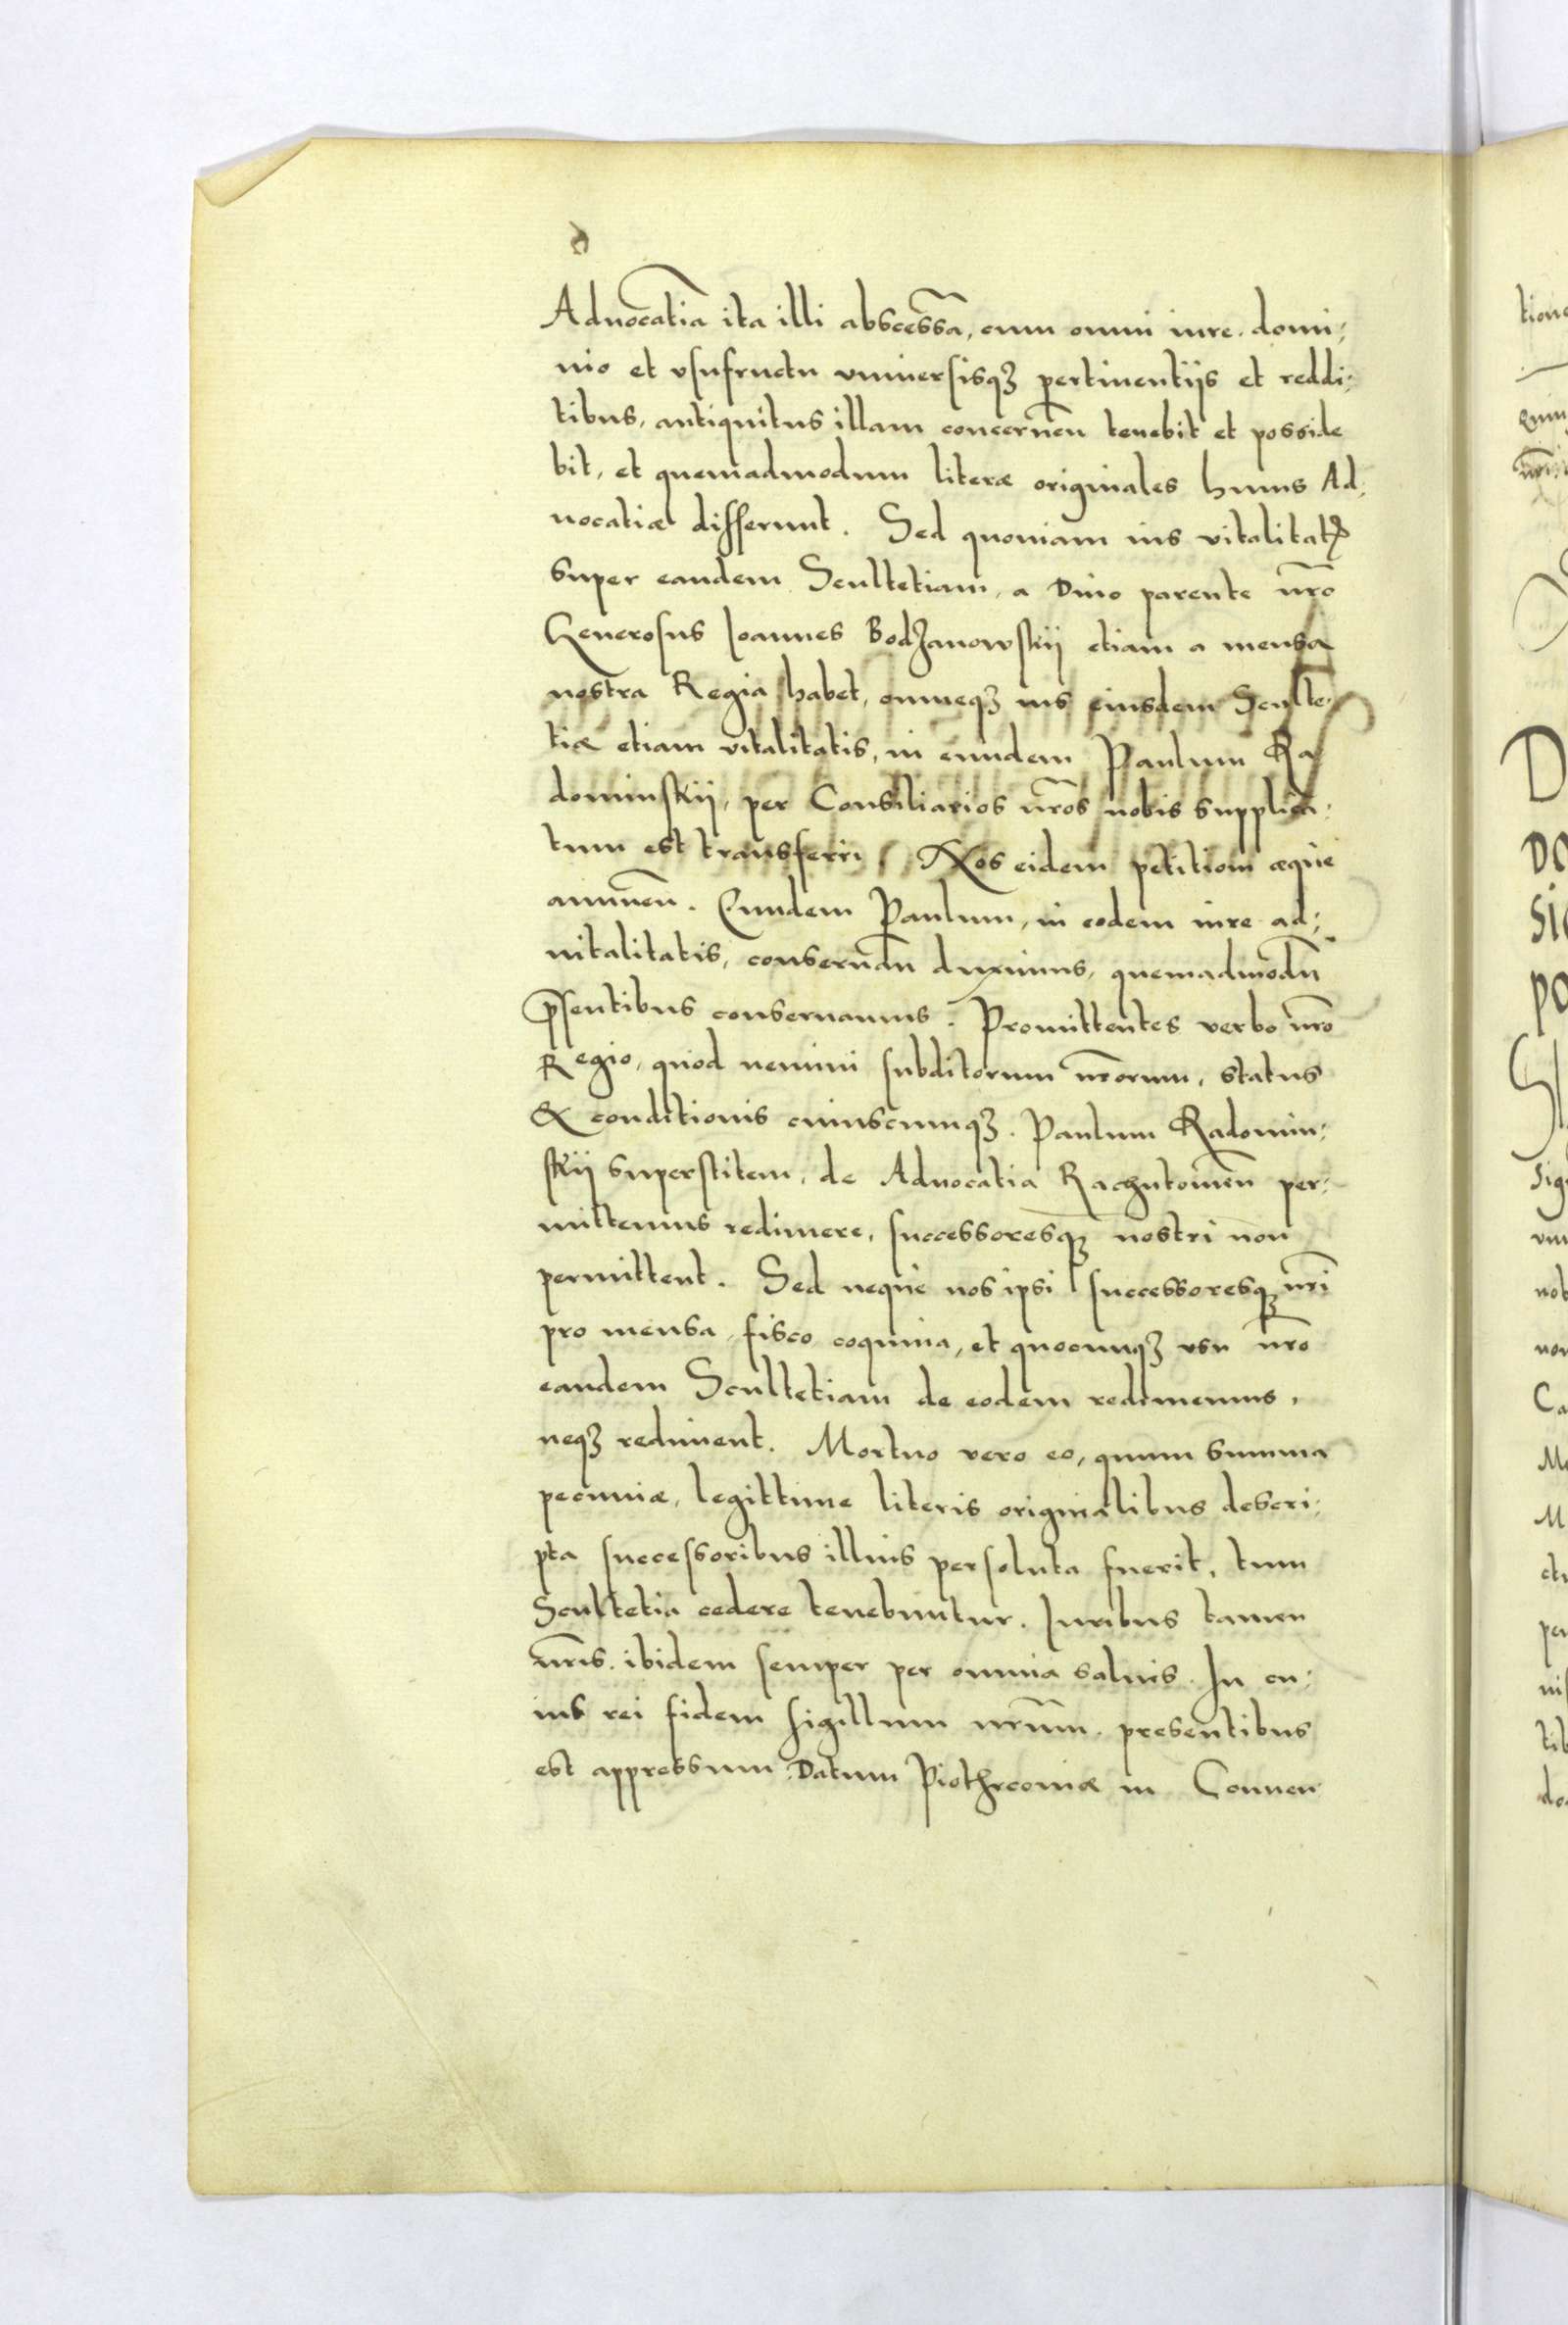 Aduocatia ita illi abscessa, cum omni iure. domi;
nio et vsufructu vniuersisqȝ pertinentijs et reddi;
tibus, antiquitus illam concernen̄ tenebit et posside
bit, et quemadmodum literæ originales huius Ad;
uocatiæ differunt. Sed quoniam ius vitalitatꝭ
super eandem Scultetiam, a Diuo parente nr̄o
Generosus Joannes Bodzanowskij etiam a mensa
nostra Regia habet, omneqȝ ius eiusdem Sculte;
tiæ etiam vitalitatis, in eundem Paulum Ra
dominskij, per Consiliarios nr̄os nobis supplica;
tum est transferri, Nos eidem petitioni æque
annuen̄. Eundem Paulum, in eodem iure ad;
uitalitatis, conseruan̄ duximus, quemadmodū
p̄sentibus conseruamus. Promittentes verbo nr̄o
Regio, quod nemini subditorum nr̄orum, status
& conditionis cuiuscumqȝ. Paulum Radomin;
skij superstitem, de Aduocatia Raczutomen̄ per;
mittemus redimere, successoresqȝ nostri non
permittent. Sed neque nos ipsi successoresqȝ nr̄i
pro mensa, fisco coquina, et quocumqȝ vsu nr̄o
eandem Scultetiam de eodem redimemus,
neqȝ rediment. Mortuo vero eo, quum summa
pecuniæ, legittime literis originalibus descri;
pta successoribus illius persoluta fuerit, tum
Scultetia cedere tenebuntur. Juribus tamen
nr̄is. ibidem semper per omnia saluis. In cu;
ius rei fidem sigillum nr̄um. presentibus
est appressum. Datum Piothrcouiæ in Conuen